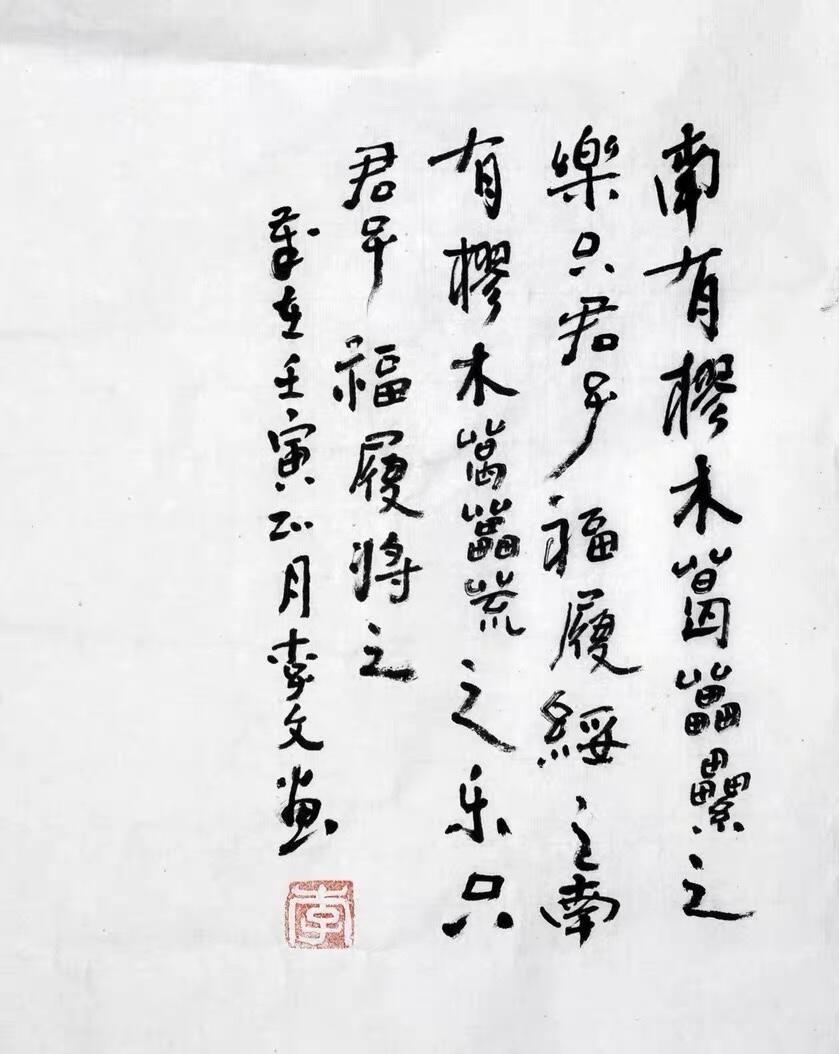 南有樛木葛藟纍之
樂只君子福履綏之南
有樛木葛藟荒之乐只
君子福履将之
岁在壬寅正月李文画
李